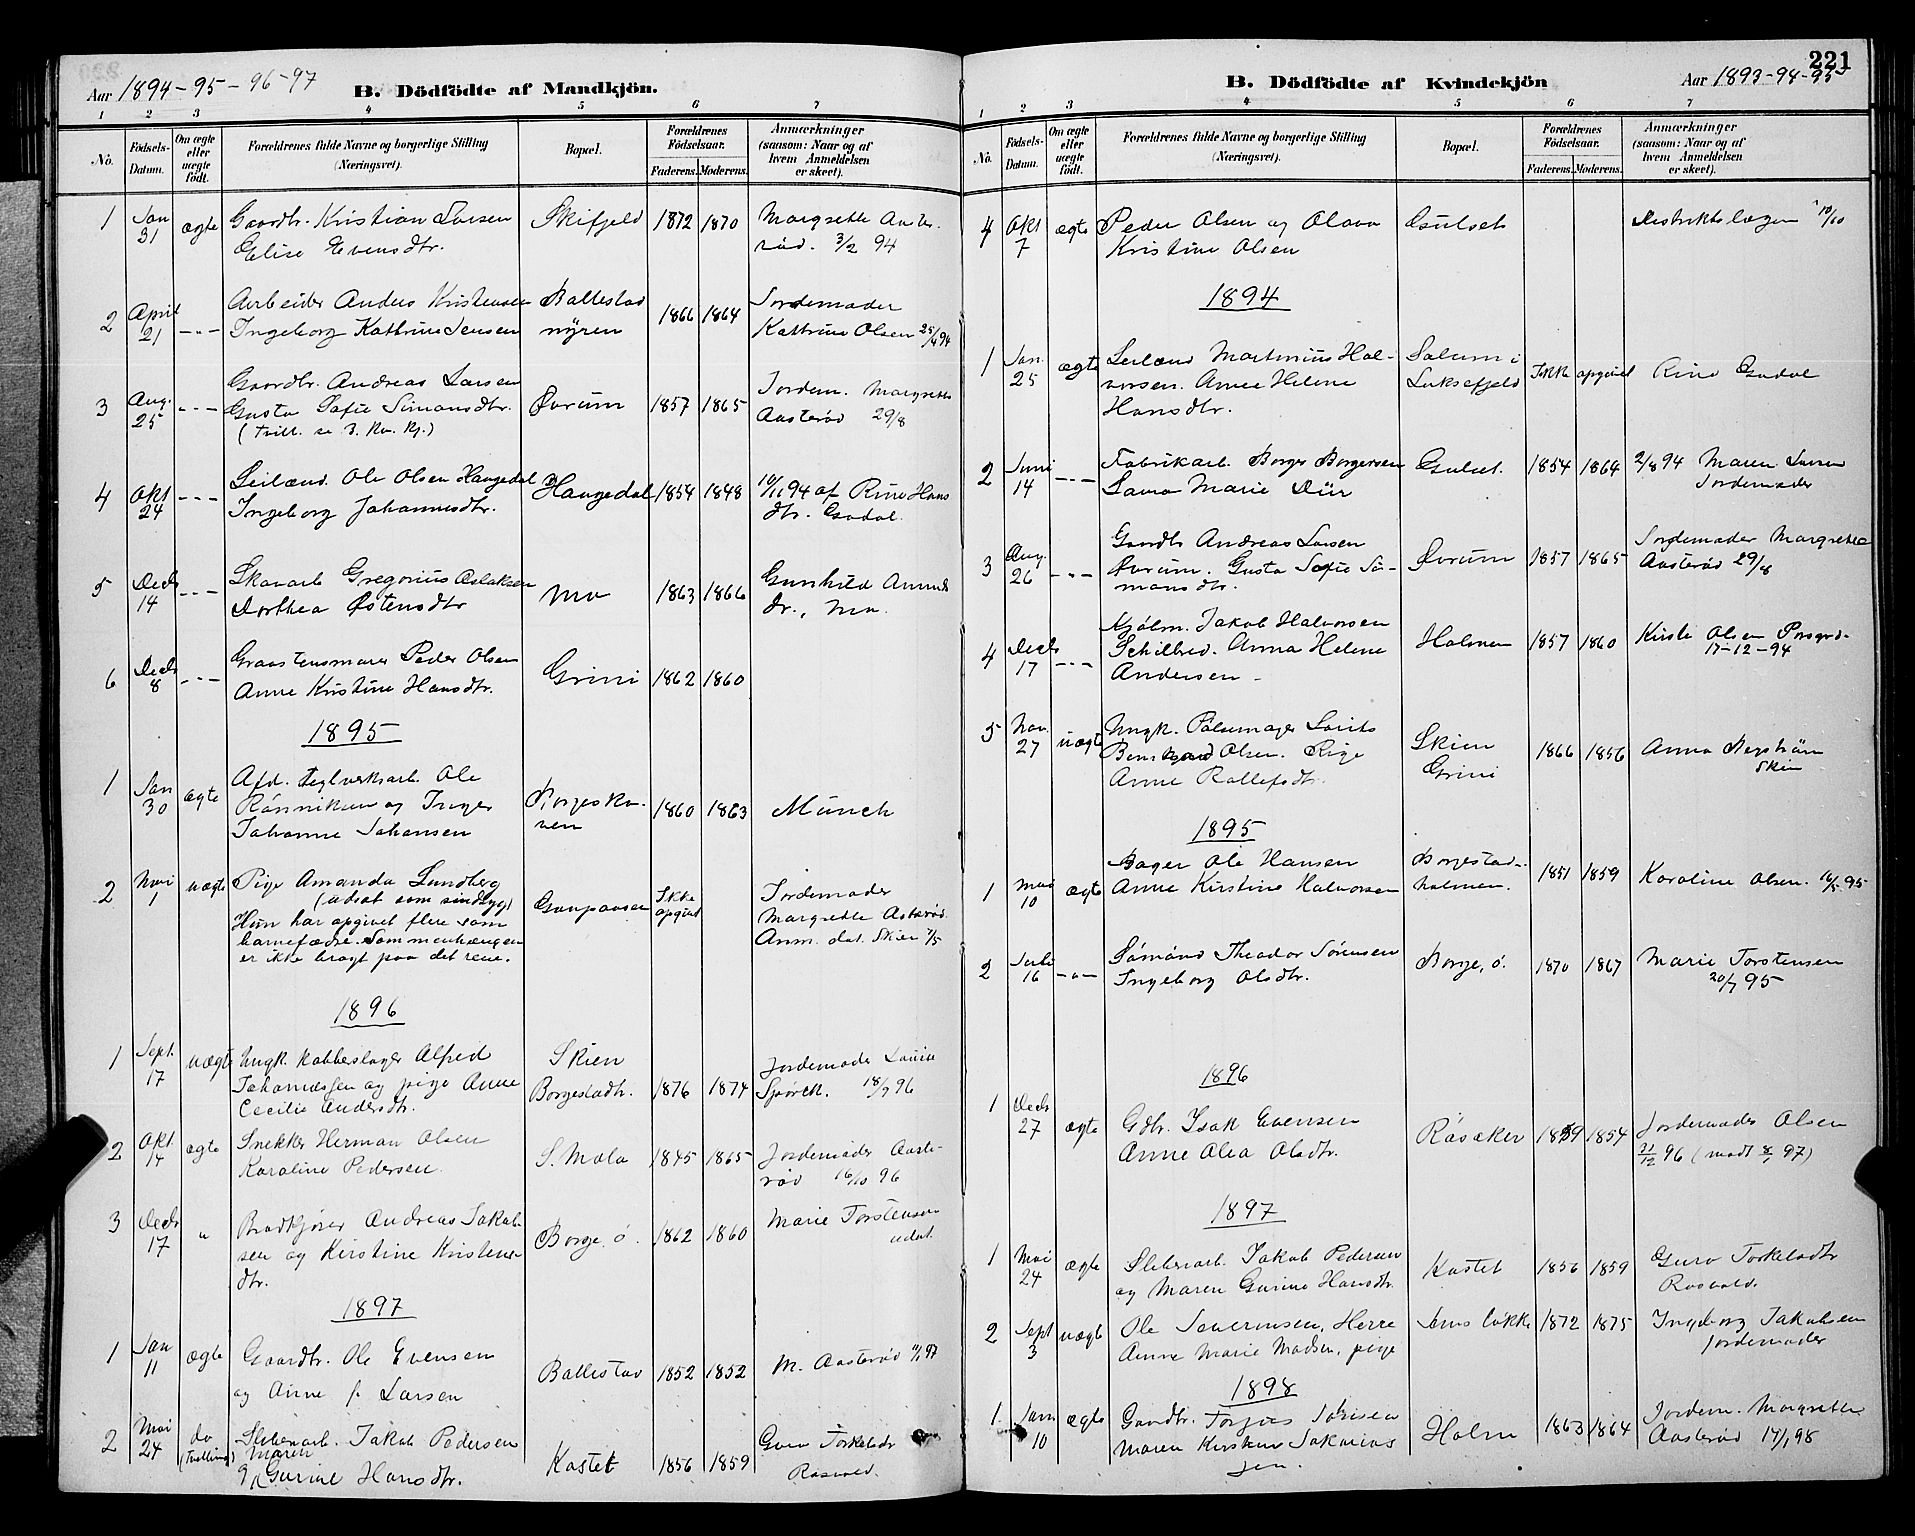 Aar 1894-95-96-97
B. Dödfödte af Mandkjön.
1 2 3 4 5 6 7
No. Födsels-Datum. Om ægte eller uægte födt. Forældrenes fulde Navne og borgerlige Stilling (Næringsvei). Bopæl. Forældrenes Födselsaar. Faderens. Moderens. Anmærkninger (saasom: Naar og af hvem Anmeldelsen er skeet).
1 Jan 31 ægte Gaardbr. Kristian Larsen Skifjeld 1872 1870 Margrethe Aaste-
Elise Evensdtr. rød. 3/2 94
2 April 21 -"- Arbeider Anders Kristensen Ballestad 1866 1864 Jordemoder
Ingeborg Kathrine Jensen myren Kathrine Olsen 25/4 94
3 Aug. 25 -"- Gaardbr. Andreas Larsen Øvrum 1857 1865 Jordem. Margrethe
Gusta Sofie Simonsdtr. Aasterød 29/8
(Tvill. se 3. Kv. Kj.)
4 Okt 24 -"- Leilænd. Ole Olsen Haugedal Haugedal 1854 1848 10/11 94 af Rine Hans
Ingeborg Johannesdtr. dtr. Gsodal.
5 Decb 14 -"- Skovarb Gregorius Aslaksen Mo 1863 1866 Gunhild Amunds
Dorthea Østensdtr dr., Mo.
6 Decb 8 -"- Graastensmurer Peder Olsen Grini 1862 1860
Anne Kristine Hansdtr.
1895
1 Jan 30 ægte Afd. teglverksarb. Ole 1860 1863 Münch
Rönniken og Inger
Johanne Johansen
2 Mai 1 uægte Pige Amanda Lundberg Ikke opgivet Jordemoder
(udsat som sindssyg) Margrethe Aasterød.
Hun har opgivet flere som Anm. dat. Skien 7/5
barnefædre. Sammenhængen
er ikke bragt paa det rene.
1896
1 Sept. 17 uægte Ungk. kobberslager Alfred Skien 1876 1874 Jordemoder Louise
Johannessen og pige Anne Borgestadbr. Spörck. 18/9 96
Cecilie Andersdtr.
2 Okt 14 ægte Snekker Herman Olsen S. Mæla 1845 1865 Jordemoder Aaste-
Karoline Pedersen. rød 16/10 96
3 Decb 17 " Brødkjører Andreas Jakob- Borge, ö. 1862 1860 Marie Torstensen
sen og Kirstine Kristens- udat.
dtr.
1897
1 Jan 11 ægte Gaardbr. Ole Evensen Ballestad 1852 1852 M. Aasterød 11/1 97
og Anne f. Larsen
2 Mai 24 do (Tvilling) Sliberiarb. Jakob Pedersen Kastet 1856 1859 Guro Torkelsdr
og Maren Gurine Hansdtr. Rosvold.
221
B. Dödfödte af Kvindekjön
Aar 1893-94-95
1 2 3 4 5 6 7
No. Födsels-Datum. Om ægte eller uægte födt. Forældrenes fulde Navne og borgerlige Stilling (Næringsvei). Bopæl. Forældrenes Födselsaar. Faderens. Moderens. Anmærkninger (saasom: Naar og af hvem Anmeldelsen er skeet).
4 Okt 7 ægte Peder Olsen og Olava Gulset Distriktslægen 10/10
Kristine Olsen
1894
1 Jan. 25 ægte Leilænd Martinius Hal- Solum i Ikke opgivet Rine Gsodal
vorsen. Anne Helene Luksefjeld
Hansdtr.
2 Juni 14 -"- Fabrikarb. Borger Borgersen Gulset. 1854 1864 2/8 94 Maren Larsen
Laura Marie Jordemoder
3 Aug. 26 -"- Gaardbr Andreas Larsen Øvrum 1857 1865 Jordemoder Margrethe
Øvrum. Gusta Sofie Si- Aasterød 29/8
monsdtr.
4 Decb 17 -"- Mjölm. Jakob Halvorsen Holmen 1857 1860 Kirsti Olsen Porsgrd.
Schilbred. Anna Helene 17-12-94
Andersen -
5 Nov. 27 uægte Ungk. Pölsemager Lauits Skien 1866 1856 Anna Bergström
Bernhard Olsen. Pige Grini Skien
Anne Rollefsdtr.
1895
1 Mai 10 ægte Bager Ole Hansen Borgestad- 1851 1859 Karoline Olsen. 16/5 95
Anne Kirstine Halvorsen holmen.
2 Juli 16 -"- Sømand Theodor Sørensen Borge, ö. 1870 1867 Marie Torstensen
Ingeborg Olsdtr. 20/7 95
1896
1 Decb 27 ægte Gdbr. Isak Evensen Rösaker 1859 1854 Jordemoder Olsen
Anne Alea Olsdtr. 31/12 96 (modt 8/1 97)
1897
1 Mai 24 ægte Sliberiarb. Jakob Pedersen Kastet 1856 1859 Guro Torkelsdtr
og Maren Gurine Hansdtr. Rosvold.
2 Sept 3 uægte Ole Severinsen, Herre Jens løkke 1872 1875 Ingeborg Jakobsen
Anne Marie Madsen, pige Jordemoder
1898
1 Jan. 10 ægte Gaardbr. Torjus Johnsen Holm 1863 1864 Jordem. Margrethe
Maren Kirstine Sakarias Aasterød 17/1 98
sen.